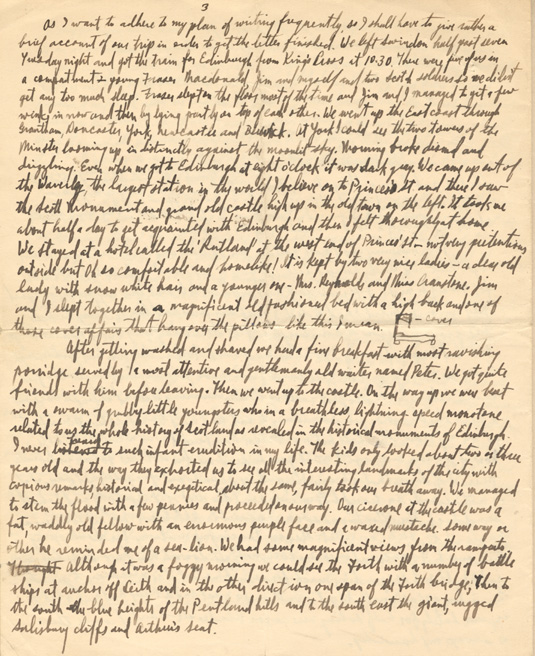 3
As I want to adhere to my plan of writing frequently, so I shall have to give rather a
brief account of our trip in order to get the letter finished. We left Swindon half past seven
Tuesday night and got the train for Edinburgh from King's Cross at 10:30. There were five of us in
a compartment - young Fraser Macdonald, Jim and myself and two Scotch soldiers so we didn't
get any too much sleep. Fraser slept on the floor most of the time and Jim and I managed to get a few
winks in now and then by lying partly on top of each other. We went up the East coast through
Grantham, Doncaster, York, Newcastle and Berwick. At York I could see the two towers of the
Minster looming up indistinctly against the moonlit sky. Morning broke dismal and
drizzling. Even when we got to Edinburgh at eight o'clock it was dark grey. We came up out of
the Waverley, the largest station in the world I believe on to Princes St. and there I saw
the Scott Monument and grand old castle high up in the old town on the left. It took me
about half a day to get acquainted with Edinburgh and then I felt thoroughly at home.
We stayed at a hotel called the 'Rutland' at the west end of Princes' St - not very pretentious
outside but Oh so comfortable and homelike! It is kept by two very nice ladies - a dear old
lady with snow white hair and a younger one - Mrs. Reynolds and Miss Cranstone. Jim
and I slept together in a magnificent old fashioned bed with a high back and one of
those cover affairs that hang over the pillows like this I mean. - cover
After getting washed and shaved we had a fine breakfast with most ravishing
porridge served by a most attentive and gentlemanly old waiter, named Peter. We got quite
friends with him before leaving. Then we went up to the castle. On the way up we were beset
with a swarm of grubby little youngsters who in a breathless lightning speed monotone
related to us the whole history of Scotland as revealed in the historical monuments of Edinburgh.
I never listened heard to such infant erudition in my life. The kids only looked about two or three
years old and the way they exhorted us to see all the interesting landmarks of the city with
copious remarks, historical and exegetical, about the same, fairly took our breath away. We managed
to stem the flood with a few pennies and proceeded on our way. Our cicerone at the castle was a
fat, waddly old fellow with an enormous purple face and a waxed mustache. Some way or
other he reminded me of a sea-lion. We had some magnificent views from the ramparts
Although it was a foggy morning we could see the Forth with a number of battle
ships at anchor off Leith and in the other direction one span of the Forth bridge; then to
the south the blue heights of the Pentland hills and to the south east the giant, rugged
Salisbury cliffs and Arthur's seat.